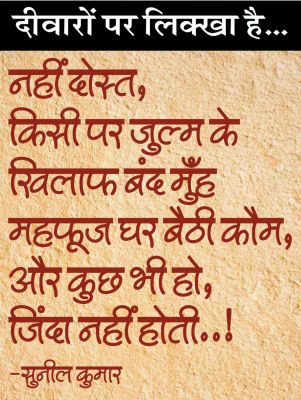 दीवारों पर लिक्खा है...
नहीं दोस्त,
किसी पर जुल्म के
खिलाफ बंद मुँह
महफूज घर बैठी कौम,
और कुछ भी हो,
जिंदा नहीं होती..!
-सुनील कुमार